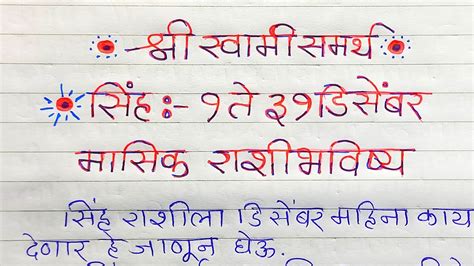 श्री स्वामी समर्थ
सिंह :- १ ते ३१ डिसेंबर
मासिक राशीभविष्य
सिंह राशीला डिसेंबर महिना काय
देणार हे जाणून घेऊ.